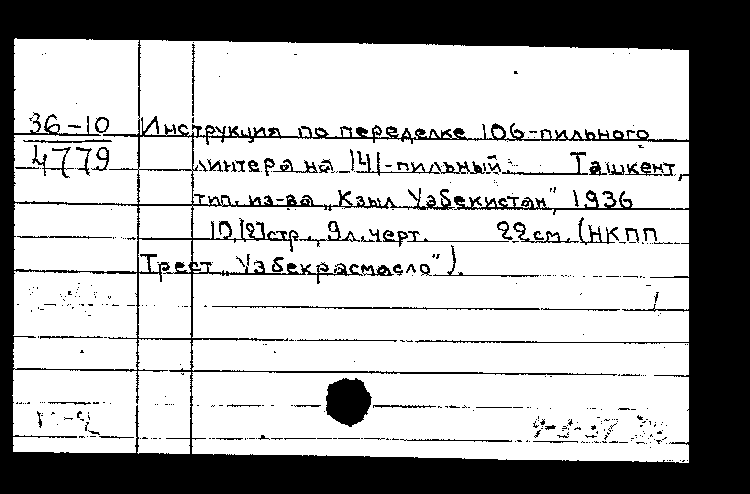 36-10
4779
Инструкция по переделке 106-пильного
линтера на 141-пильный. Ташкент,
тип. из-ва „Кзыл Узбекистан", 1936
10,[2]стр., 9л.черт. 22см. (НКПП
Трест „Узбекрасмасло").